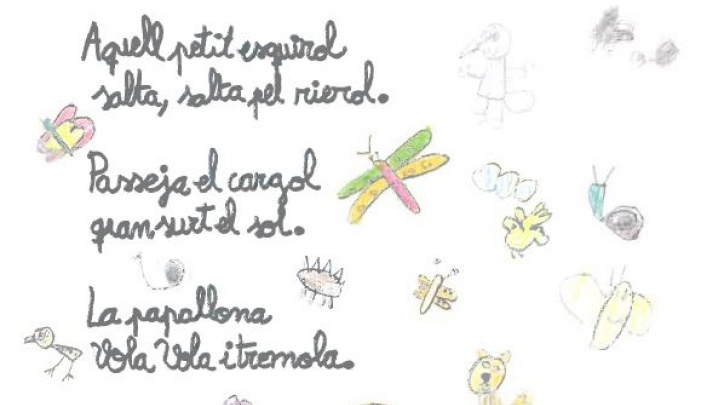 Aquell petit esquirol
salta, salta pel rierol.
Passeja el cargol
quan surt el sol.
La papallona
Vola Vola i tremola.